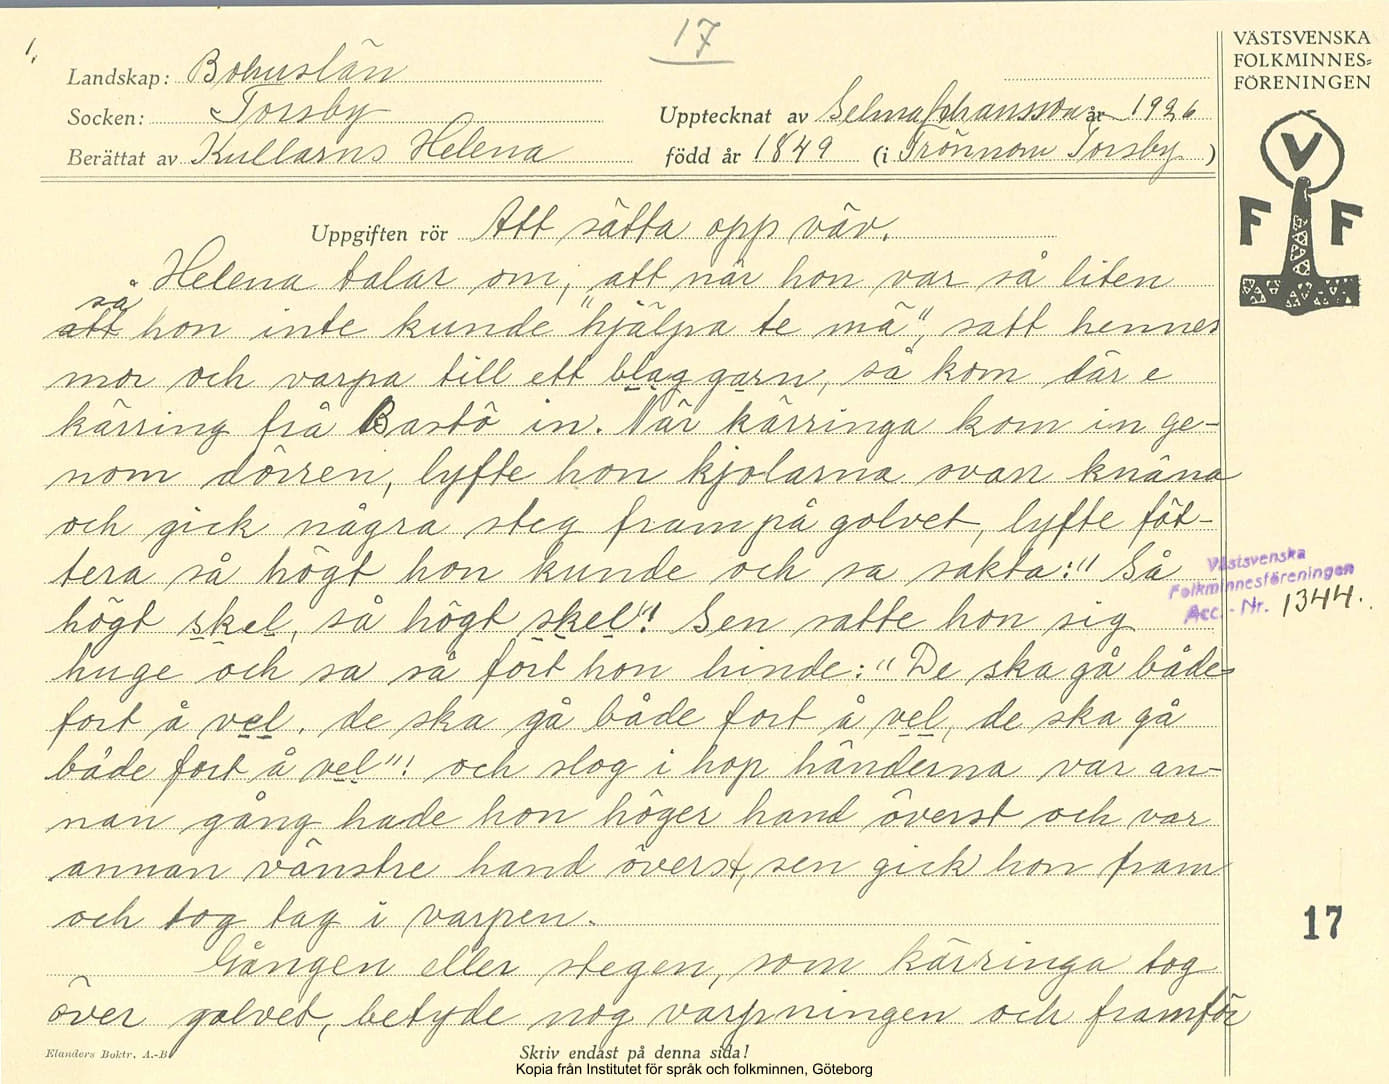 1.
17
Landskap: Bohuslän
Socken: Torsby
Berättat av Kullarns Helena
Upptecknat av Selma Johansson år 1926
född år 1849 (i Trönnom Torsby)
VÄSTSVENSKA
FOLKMINNES=
FÖRENINGEN
V
F F
Uppgiften rör Att sätta opp väv.
Helena talar om, att när hon var så liten
så
att hon inte kunde "hjälpa te mä", satt hennes
mor och varpa till ett blaggarn, så kom där e
kärring frå Bastö in. När kärringa kom in ge-
nom dörren, lyfte hon kjolarna ovan knäna
och gick några steg fram på golvet, lyfte föt-
tera så högt hon kunde och sa sakta: "Så
högt skel, så högt skel"! Sen satte hon sig
huge och sa så fort hon hinde: "De ska gå både
fort å vel, de ska gå både fort å vel, de ska gå
både fort å vel"! och slog i hop händerna var an-
nan gång hade hon höger hand överst och var
annan vänstre hand överst, sen gick hon fram
och tog tag i varpen.
Gången eller stegen, som kärringa tog
över golvet, betyde nog varpningen och framför
Västsvenska
Folkminnesföreningen
Acc.-Nr. 1344.
17
Elanders Boktr. A.-B.
Skriv endast på denna sida!
Kopia från Institutet för språk och folkminnen, Göteborg